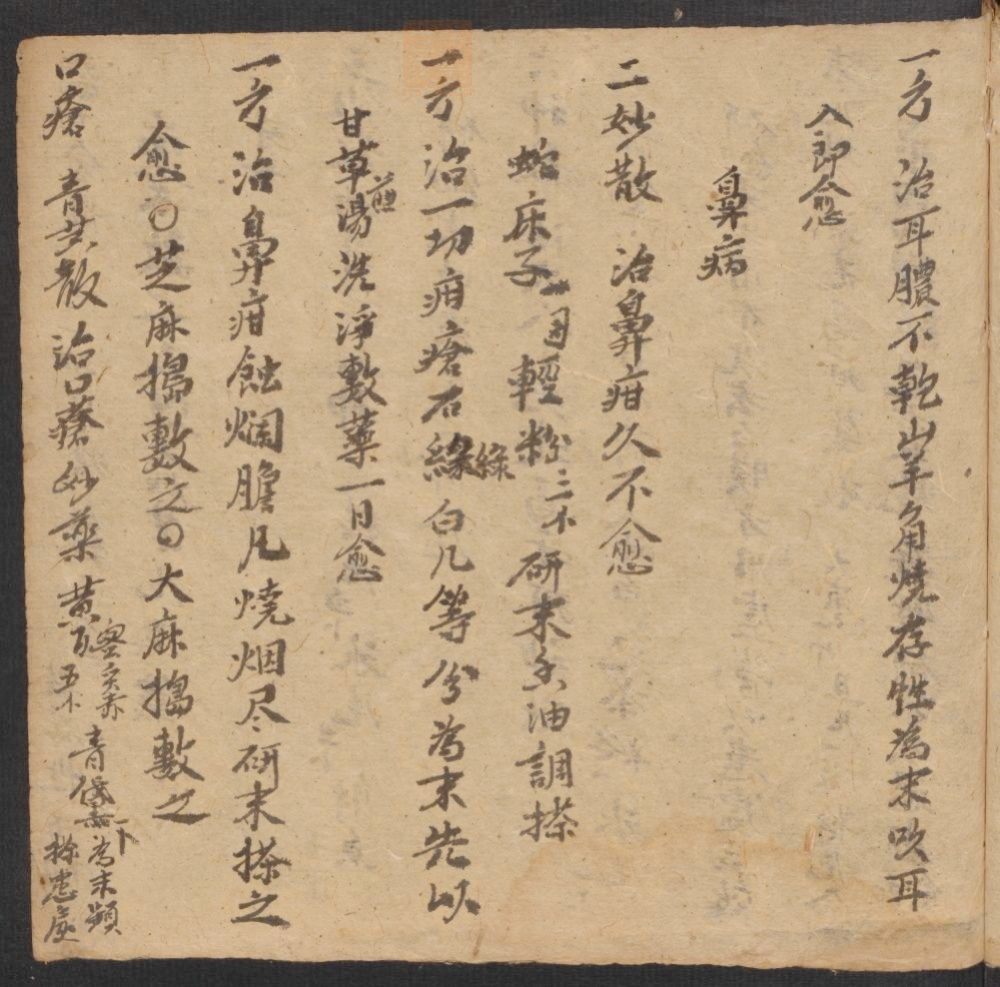 一方 治耳膿不乾山羊角燒存性為末吹耳
入即愈
鼻病
二妙散 治鼻疳久不愈
蛇床子 輕粉三 研末 油調搽
一方治一切疳瘡石緣綠白凡等分為末先以
甘草煎湯洗淨敷藥一日愈
一方治鼻疳蝕爛膽凡燒烟尽研末搽之
愈〇芝麻搗敷之〇大麻搗敷之
口瘡 青 散治口瘡妙藥黃 蜜炙赤五 青黛 為末頻搽患處